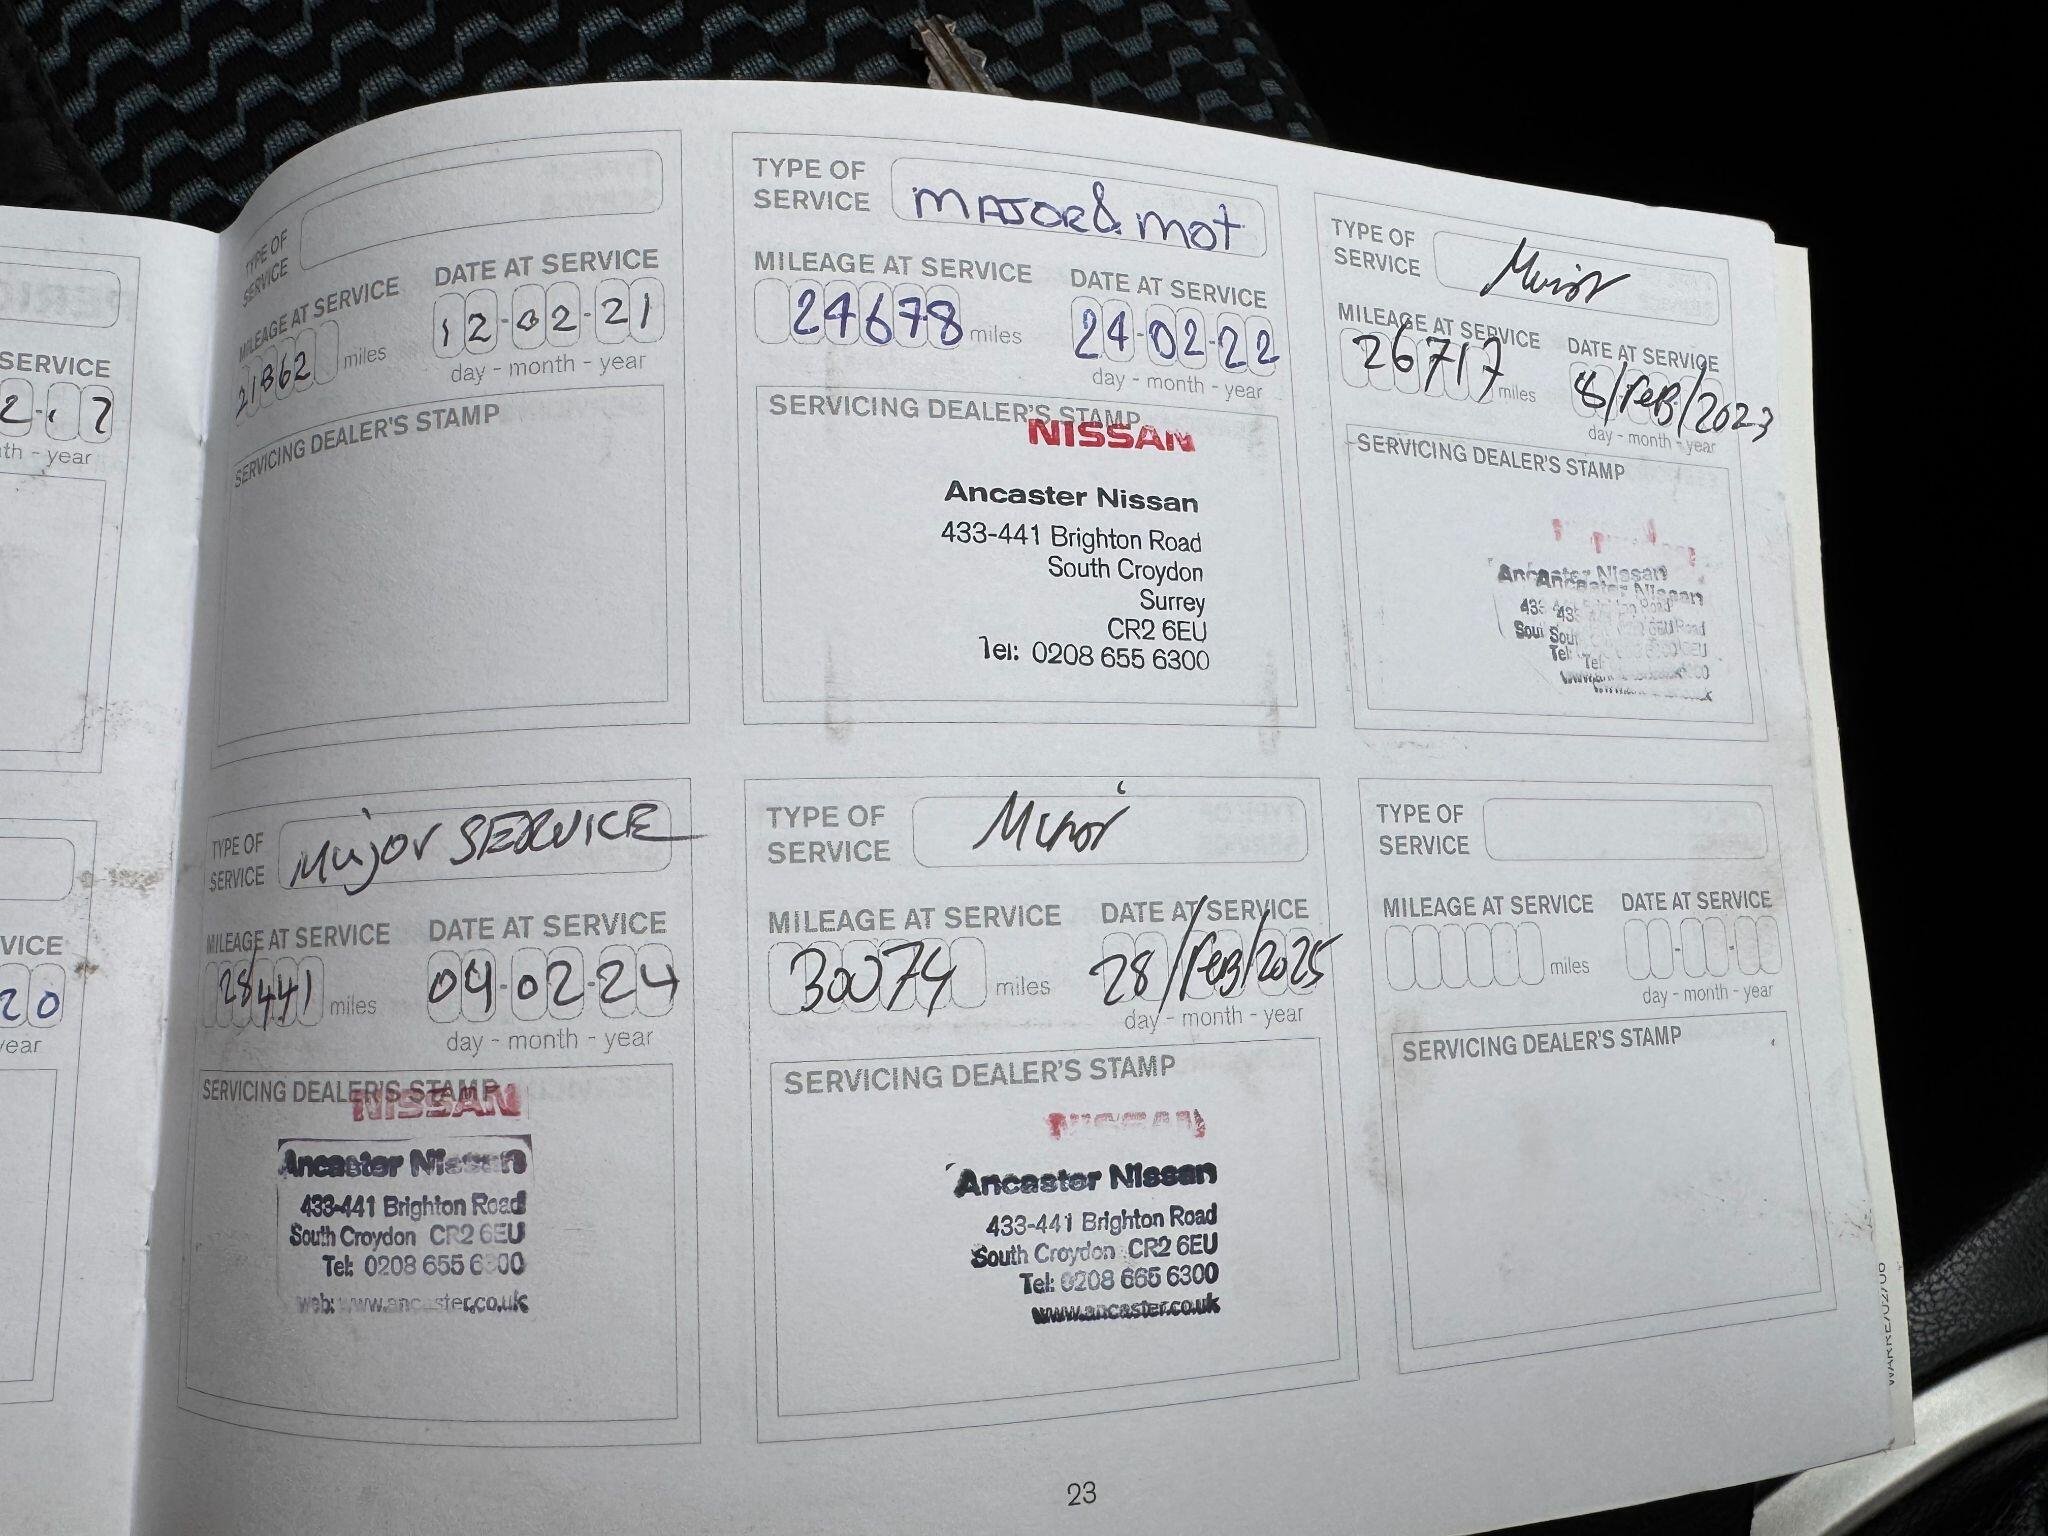 SERVICE
year
VICE
20
year
TYPE OF
SERVICE
MILEAGE AT SERVICE
DATE AT SERVICE
21862 miles
12-02-21
day - month - year
SERVICING DEALER'S STAMP
TYPE OF
SERVICE
MAJOR & MOT
MILEAGE AT SERVICE
DATE AT SERVICE
24678 miles
24-02-22
day - month - year
SERVICING DEALER'S STAMP
NISSAN
Ancaster Nissan
433-441 Brighton Road
South Croydon
Surrey
CR2 6EU
Tel: 0208 655 6300
TYPE OF
SERVICE
Minor
MILEAGE AT SERVICE
DATE AT SERVICE
26717 miles
8/FeB/2023
day - month - year
SERVICING DEALER'S STAMP
Ancaster Nissan
TYPE OF
SERVICE
Major SERVICE
MILEAGE AT SERVICE
DATE AT SERVICE
28441 miles
04-02-24
day - month - year
SERVICING DEALER'S STAMP
NISSAN
Ancaster Nissan
433-441 Brighton Road
South Croydon CR2 6EU
Tel: 0208 655 6300
web: www.ancaster.co.uk
TYPE OF
SERVICE
Minor
MILEAGE AT SERVICE
DATE AT SERVICE
30074 miles
28/FeB/2025
day - month - year
SERVICING DEALER'S STAMP
NISSAN
Ancaster Nissan
433-441 Brighton Road
South Croydon CR2 6EU
Tel: 0208 655 6300
www.ancaster.co.uk
TYPE OF
SERVICE
MILEAGE AT SERVICE
DATE AT SERVICE
miles
day - month - year
SERVICING DEALER'S STAMP
23